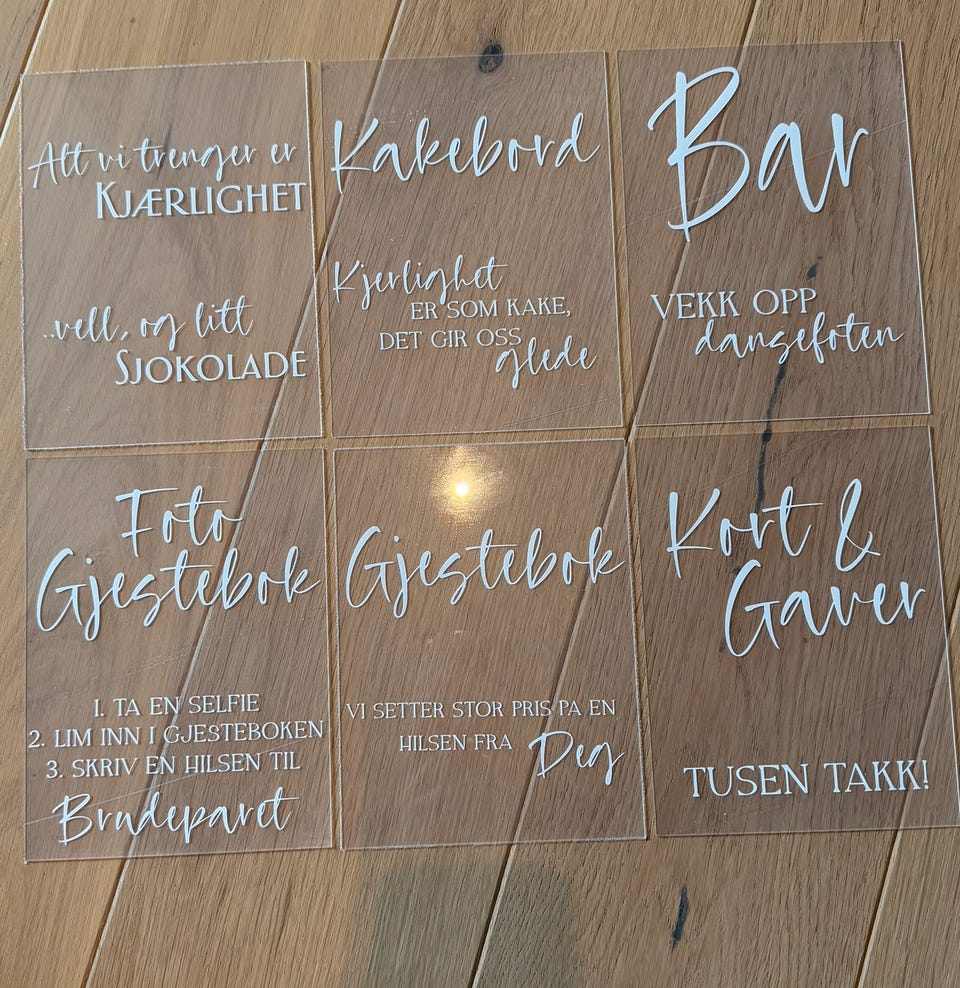 Alt vi trenger er
KJÆRLIGHET
..vell, og litt
SJOKOLADE
Kakebord
Kjerlighet
ER SOM KAKE,
DET GIR OSS
glede
Bar
VEKK OPP
dansefoten
Foto
Gjestebok
1. TA EN SELFIE
2. LIM INN I GJESTEBOKEN
3. SKRIV EN HILSEN TIL
Brudeparet
Gjestebok
VI SETTER STOR PRIS PA EN
HILSEN FRA Deg
Kort &
Gaver
TUSEN TAKK!